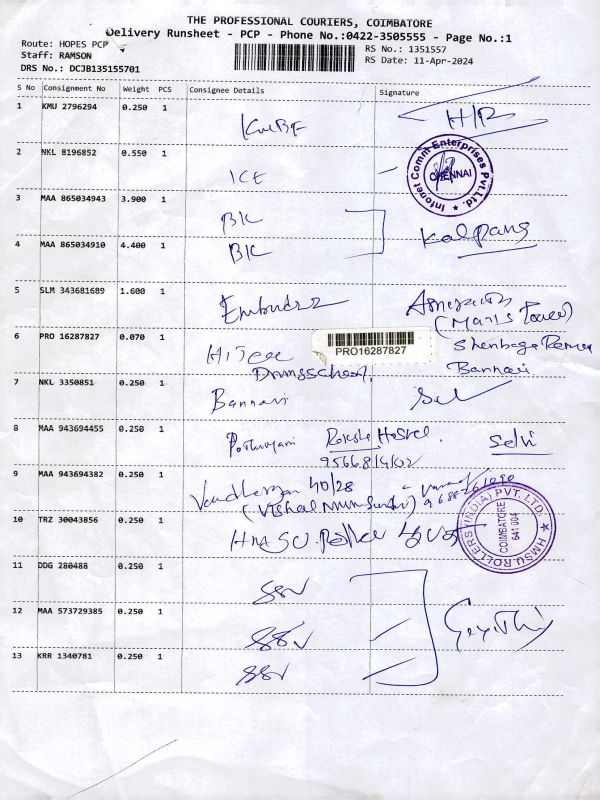 THE PROFESSIONAL COURIERS, COIMBATORE
Delivery Runsheet - PCP - Phone No.:0422-3505555 - Page No.:1
Route: HOPES PCP
RS No.: 1351557
Staff: RAMSON
RS Date: 11-Apr-2024
DRS No.: DCJB135155701
S No Consignment No Weight PCS Consignee Details Signature
1 KMU 2796294 0.250 1
2 NKL 8196852 0.550 1 ICE
Infonet Comm Enterprises Pvt.Ltd. ★ CHENNAI
3 MAA 865034943 3.900 1 BK
Kalpana
4 MAA 865034910 4.400 1 BK
5 SLM 343681689 1.600 1
6 PRO 16287827 0.070 1
PRO16287827
7 NKL 3350851 0.250 1 Bannari
Bannari
8 MAA 943694455 0.250 1 Hostel. Selvi
9 MAA 943694382 0.250 1 40/28
10 TRZ 30043856 0.250 1
HMSU ROLLERS (INDIA) PVT. LTD. ★ COIMBATORE 641 004
11 DDG 280488 0.250 1 SSV
12 MAA 573729385 0.250 1 SSV
13 KRR 1340781 0.250 1 SSV